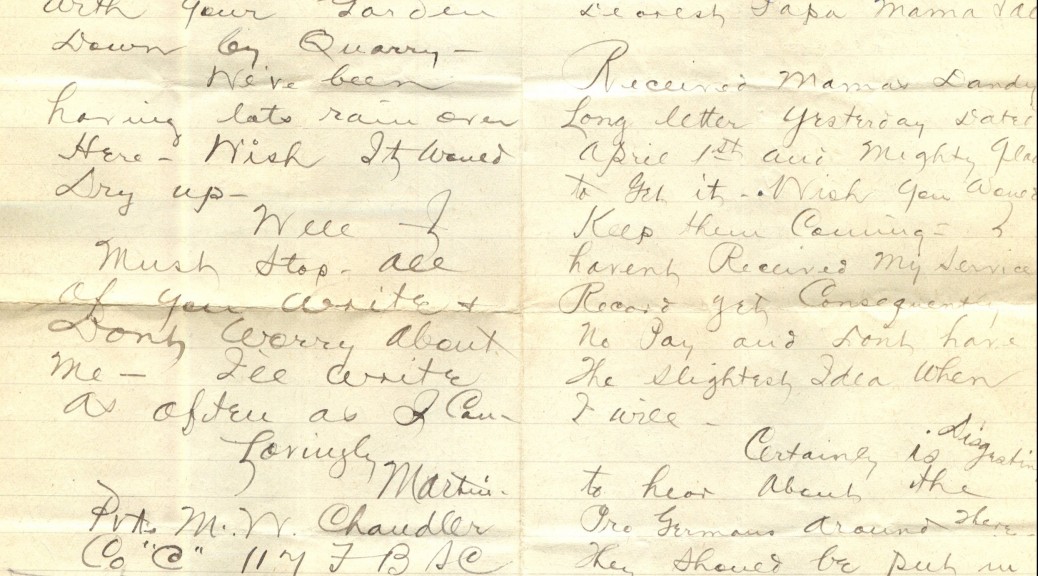 with your Garden
Down by Quarry-
We've been
having lots rain over
Here- Wish It Would
Dry up-
Well I
Must Stop- all
of you write +
Dont Worry About
Me- I'll write
As often as I Can-
Lovingly
Martin.
Pvt. M. W. Chandler
Co "C" 117 F B S C
Dearest Papa Mama &
Received Mamas Dandy
Long letter Yesterday Dated
April 1st and Mighty Glad
to Get it- Wish you Would
Keep them Coming- I
havent Received My Service
Record yet Consequently
No Pay and Dont have
The Slightest Idea When
I will-
Certainly is Disgusting
to hear About the
Pro Germans Around There-
They Should be put in